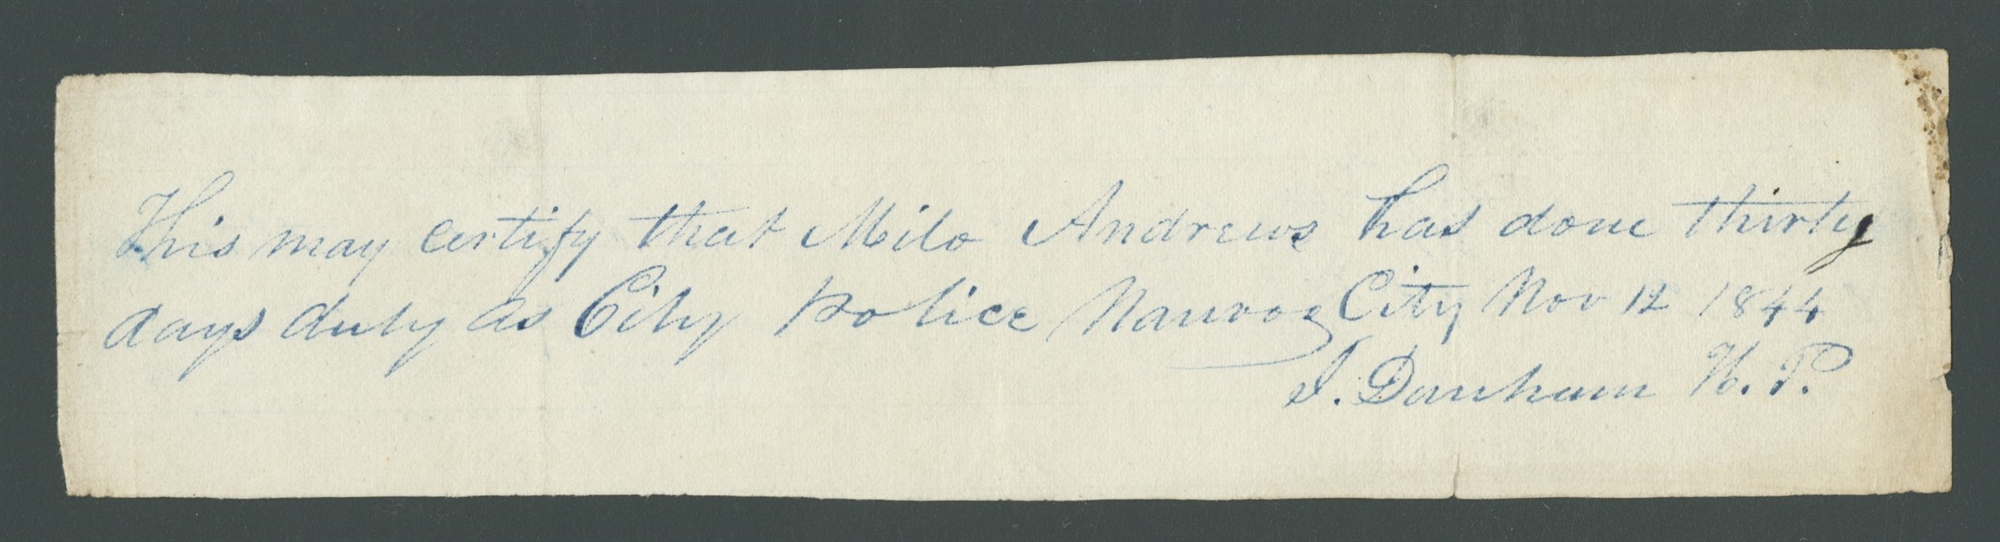 This may certify that Milo Andrews has done thirty
days duty as City Police Nauvoo City Nov 12 1844
J. Dunham H. P.